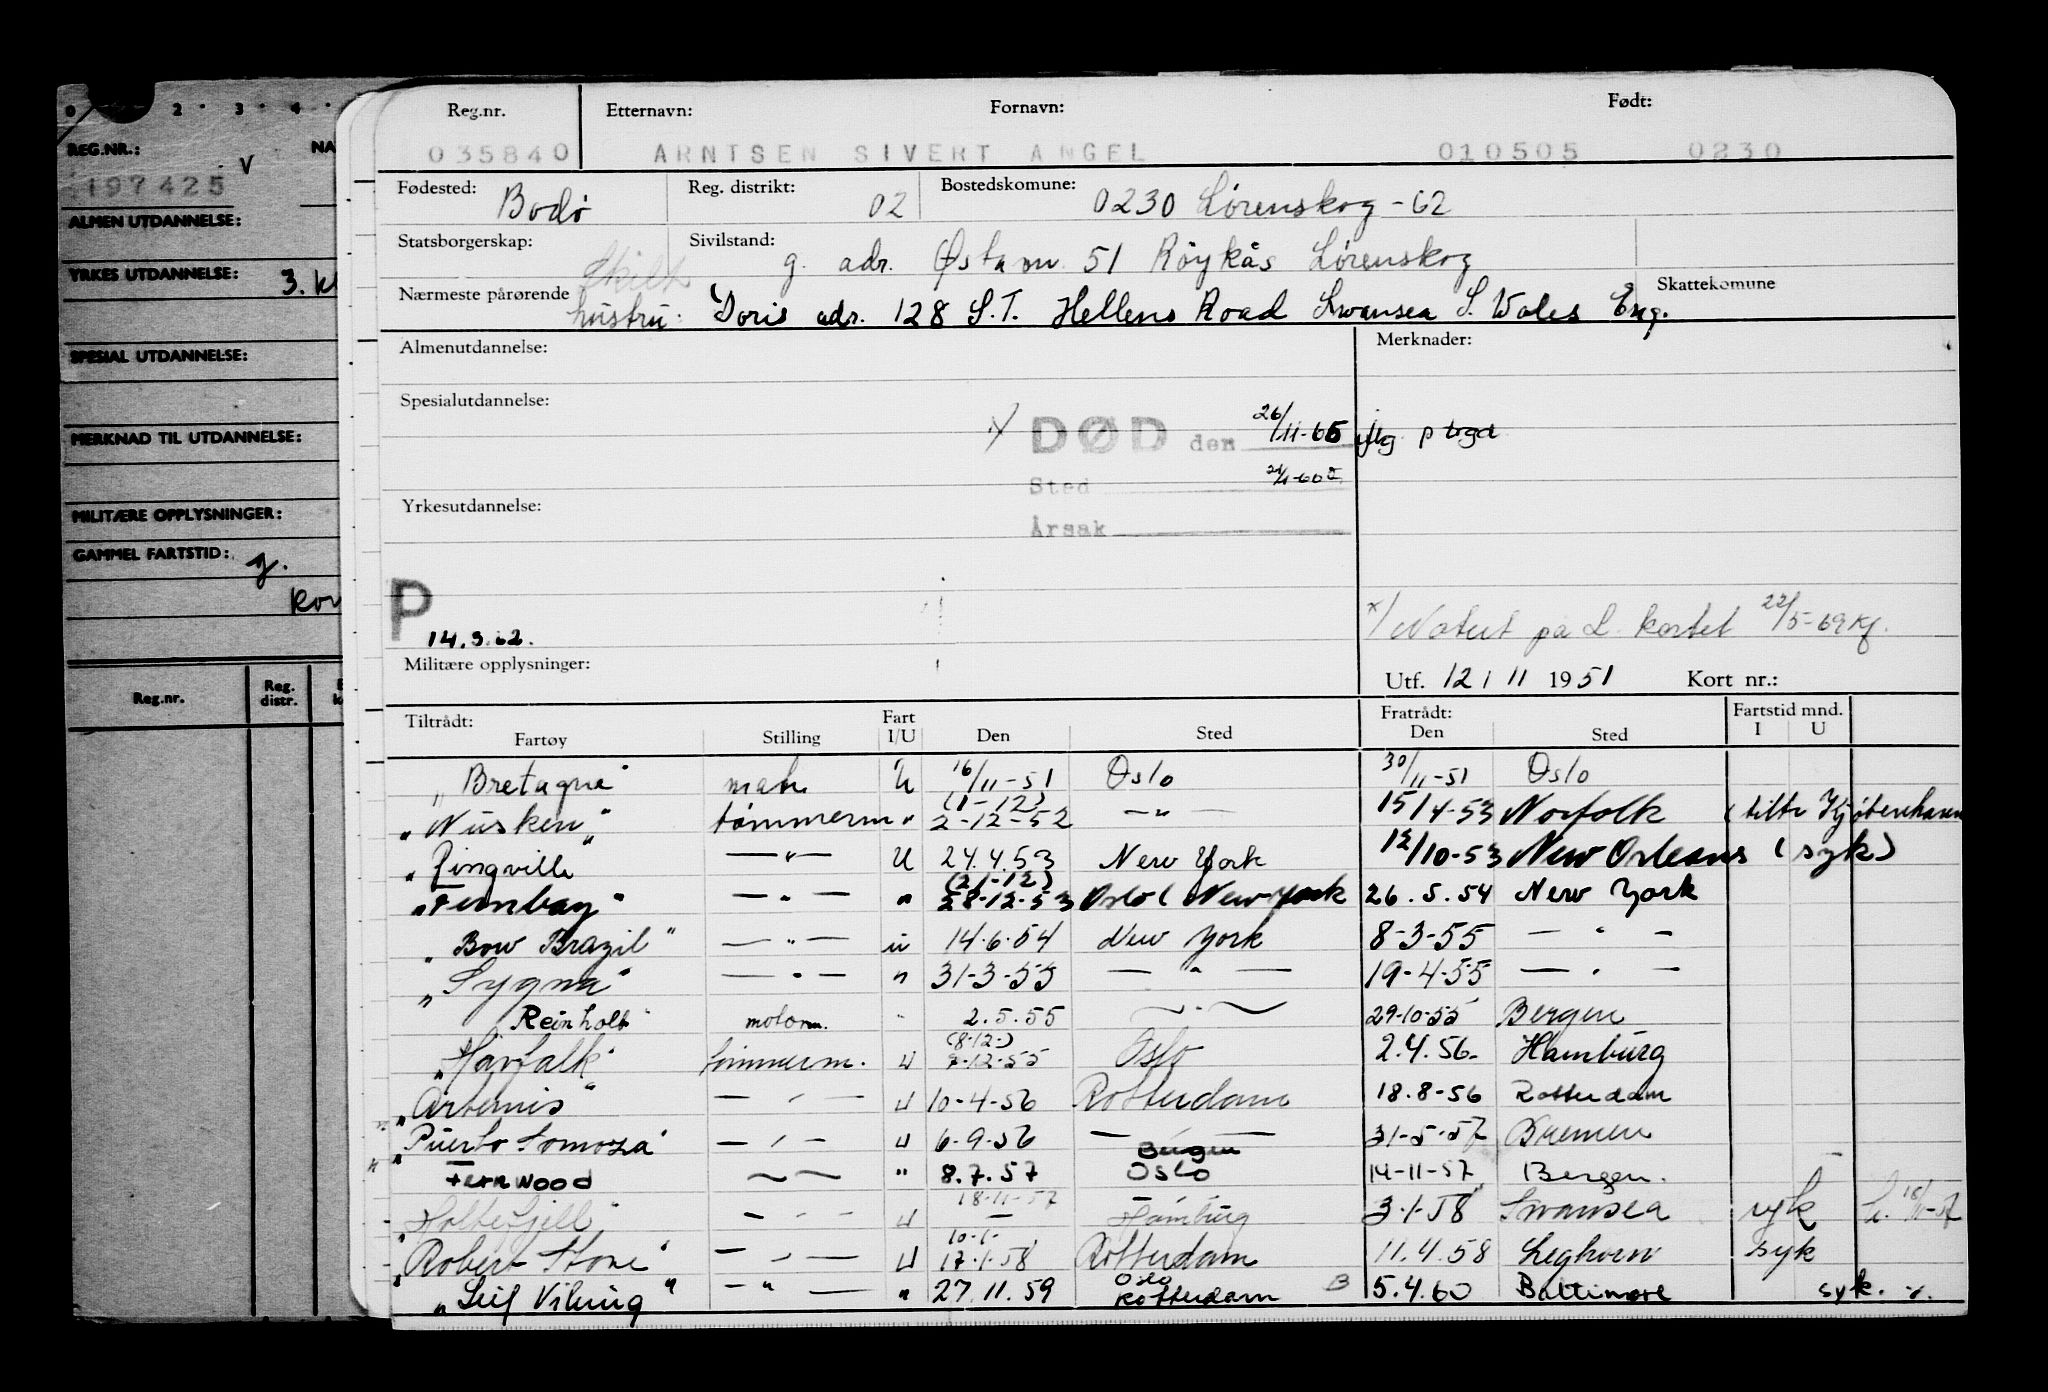 0 2 · 3 · 4 ·
REG.NR.: V NA
197425
ALMEN UTDANNELSE:
YRKES UTDANNELSE: 3. kl
SPESIAL UTDANNELSE:
MERKNAD TIL UTDANNELSE:
MILITÆRE OPPLYSNINGER:
GAMMEL FARTSTID: g.
Reg.nr. Reg. distr.
Reg.nr. Etternavn: Fornavn: Født:
035840 ARNTSEN SIVERT ANGEL 010505 0230
Fødested: Bodø Reg. distrikt: 02 Bostedskomune: 0230 Lørenskog - 62
Statsborgerskap: Sivilstand: g. adr. Østam 51 Røykås Lørenskog
Skilt
Nærmeste pårørende hustru: Doris adr. 128 S.T. Hellens Road Swansea S. Wales Eng. Skattekomune
Almenutdannelse: Merknader:
Spesialutdannelse:
x/ DØD den 26/11-65
Sted
Yrkesutdannelse:
Årsak
P
14.9.62.
x/ Notert på L. kortet 22/5-69 Kf.
Militære opplysninger: Utf. 12 / 11 1951 Kort nr.:
Tiltrådt: Fart Fratrådt: Fartstid mnd.
Fartøy Stilling I/U Den Sted Den Sted I U
"Bretagne" matr. U 16/11-51 Oslo 30/11-51 Oslo
(1-12)
"Nusken" tømmerm " 2-12-52 — " — 15/4-53 Norfolk (tiltr Kjøbenhavn
"Ringville" — " — U 24.4.53 New York 12/10-53 New Orleans (syk)
(21-12)
"Fernbay" — " — " 28-12-53 Oslo (New York 26.5.54 New York
"Bow Brazil" — " — u 14.6.54 New York 8-3-55 — " —
"Sygna" — " — " 31-3-55 — " — 19-4-55 — " —
Reinholt" motorm. " 2.5.55 — " — 29-10-55 Bergen
(8-12-)
"Havfalk" tømmerm. U 9-12-55 Oslo 2.4.56- Hamburg
"Artemis" — " — U 10-4-56 Rotterdam 18.8-56 Rotterdam
"Puerto Somoza" — " — U 6-9-56 — " — 31-5-57 Bremen
Bergen
Fernwood — " — " 8.7.57 Oslo 14-11-57 Bergen.
18-11-57
"Holtefjell" — " — U — Hamburg 3-1-58 Swansea syk
10-1-
"Robert Stove" — " — U 17-1-58 Rotterdam 11.4.58 Leghorn syk
Oslo
"Leif Viking" — " — " 27.11.59 Rotterdam B 5.4.60 Baltimore syk.